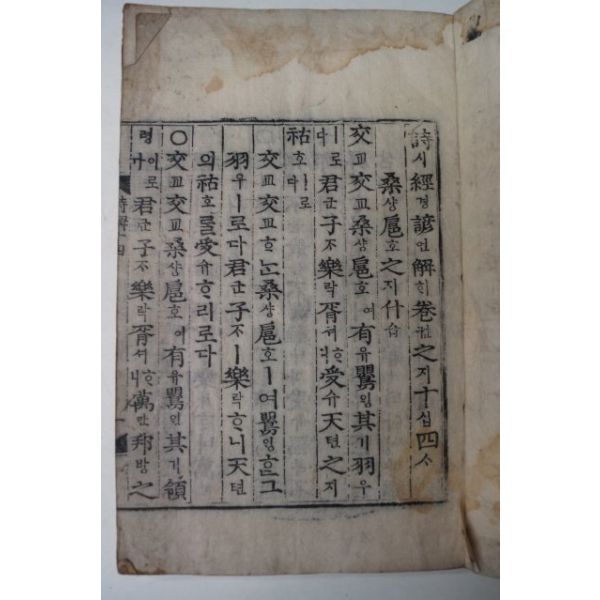 詩시經경諺언解ᄒᆡ卷권之지十십四ᄉᆞ
桑상扈호之지什습
交교交교桑상扈호여有유鶯ᄋᆡᆼ其기羽우
ㅣ로다君군子ᄌᆞ樂락胥셔ᄒᆞ니受슈天텬之지
祜호ㅣ로다
○交교交교ᄒᆞᄂᆞᆫ桑상扈호ㅣ여鶯ᄋᆡᆼᄒᆞᆫ그
羽우ㅣ로다君군子ᄌᆞㅣ樂락ᄒᆞ니天텬
의祜호ᄅᆞᆯ受슈ᄒᆞ리로다
○交교交교桑상扈호여有유鶯ᄋᆡᆼ其기領
령이로다君군子ᄌᆞ樂락胥셔ᄒᆞ니萬만邦방之